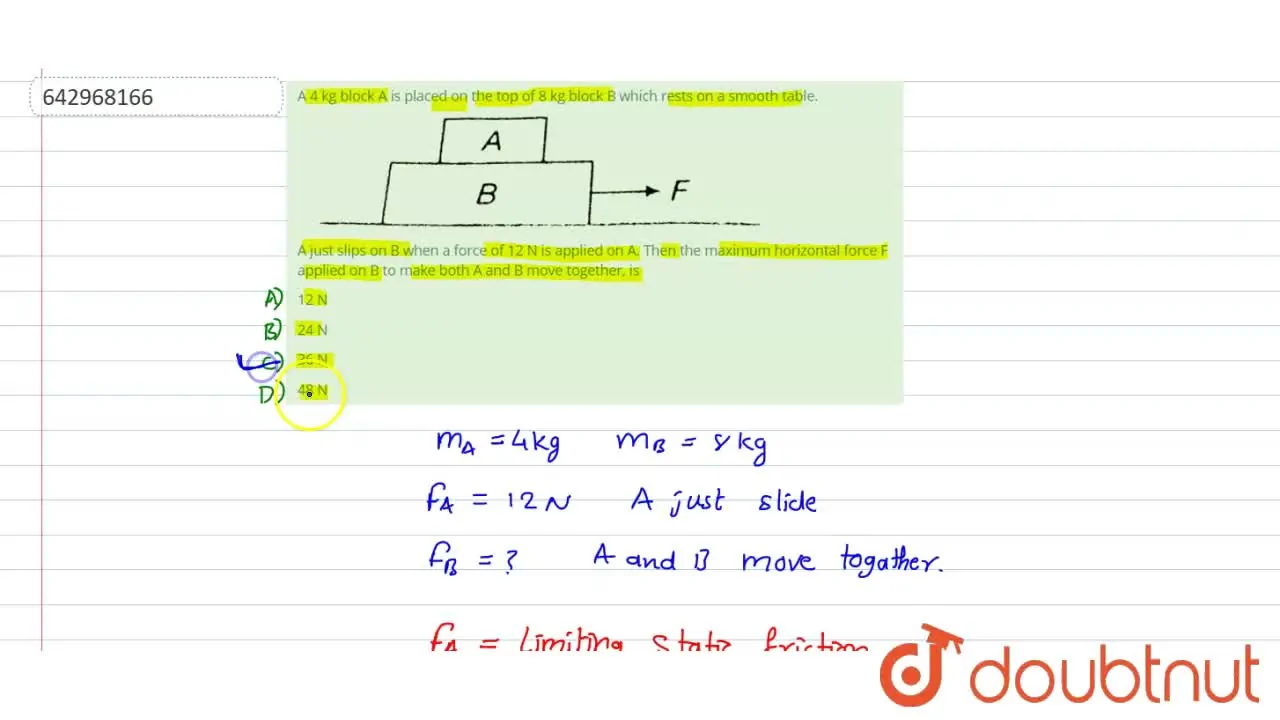 642968166
A 4 kg block A is placed on the top of 8 kg block B which rests on a smooth table.
A
B
F
A just slips on B when a force of 12 N is applied on A. Then the maximum horizontal force F
applied on B to make both A and B move together, is
A) 12 N
B) 24 N
C) 36 N
D) 48 N
mA = 4kg mB = 8 kg
fA = 12 N A just slide
fB = ? A and B move togather.
fA = Limiting static friction
doubtnut